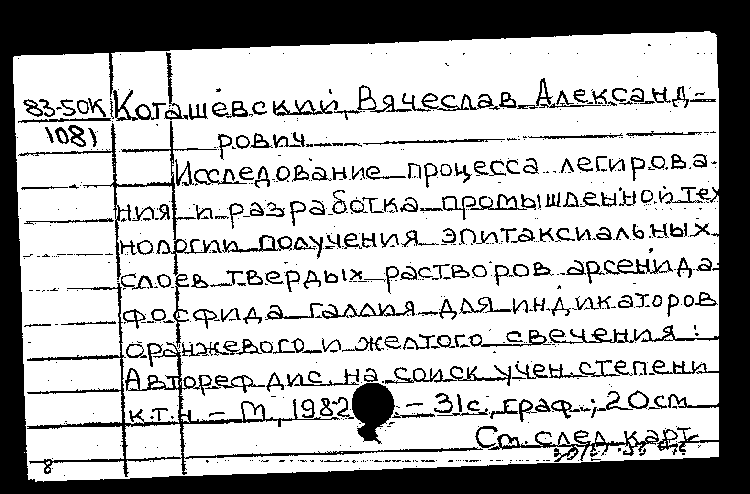 83-50К Коташевский, Вячеслав Александ-
1081 рович
Исследование процесса легирова-
ния и разработка промышленной тех
нологии получения эпитаксиальных
слоев твердых растворов арсенида-
фосфида галлия для индикаторов
оранжевого и желтого свечения:
Автореф дис. на соиск учен. степени
к.т.н. – М, 1982. – 31с., граф.; 20см
См. след. карт.
8